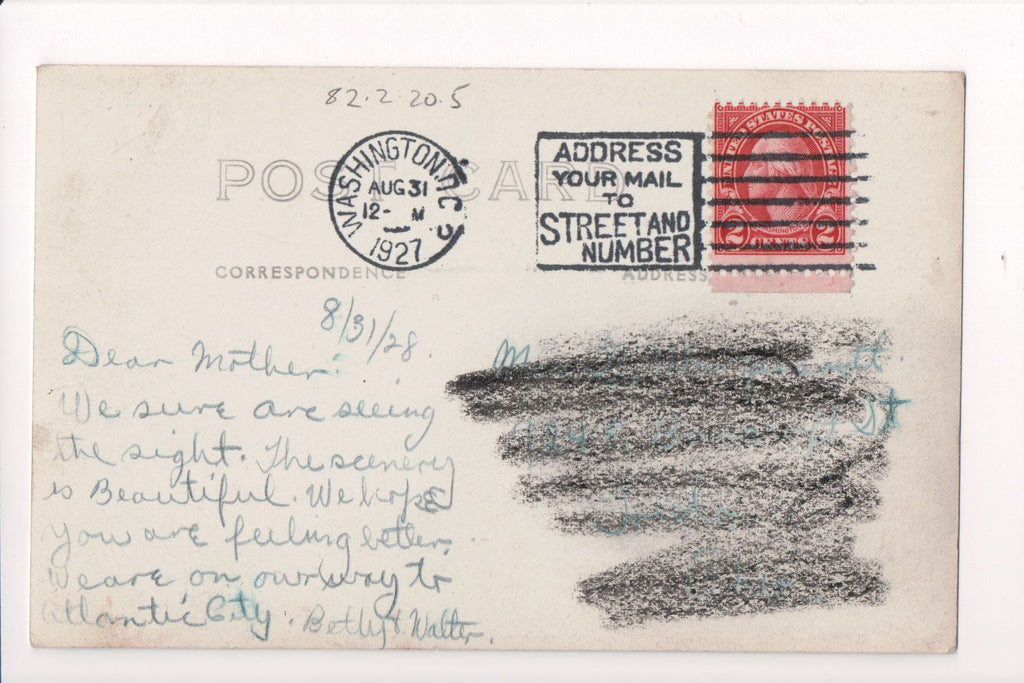 82.2.20.5
POST CARD
WASHINGTON, D.C.
AUG 31
12- M
1927
ADDRESS
YOUR MAIL
TO
STREET AND
NUMBER
UNITED STATES POSTAGE
WASHINGTON
2 CENTS 2
CORRESPONDENCE
ADDRESS
8/31/28.
Dear Mother:
We sure are seeing
the sight. The scenery
is Beautiful. We hope
you are feeling better.
We are on our way to
Atlantic City. Betty & Walter.
St